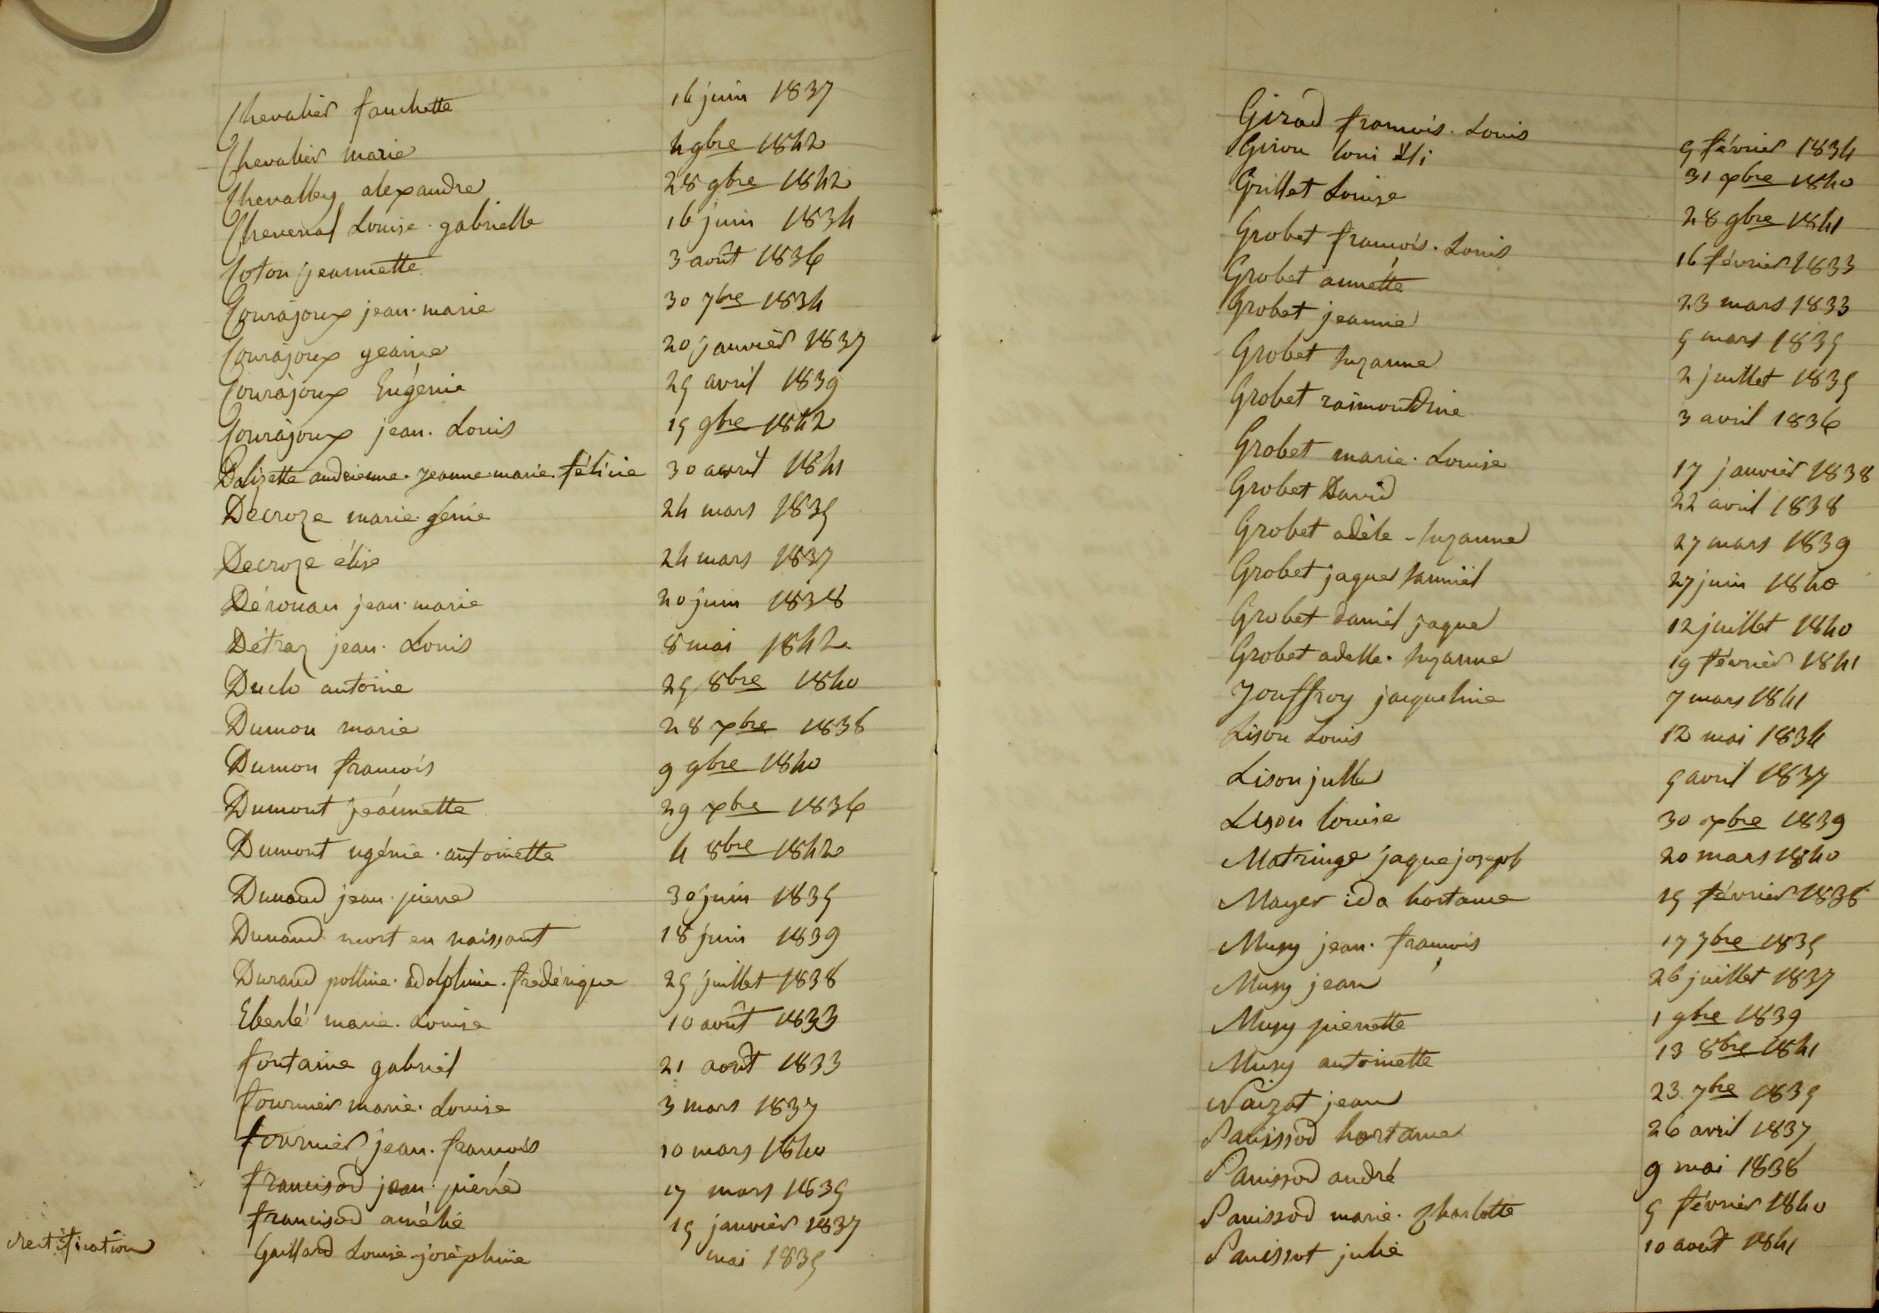 Chevalier fanchette 16 juin 1837
Chevalier marie 4 9bre 1842
Chevalley alexandre 28 9bre 1842
Cheneval Louise . gabrielle 16 juin 1834
Coton jeannette 3 août 1836
Courajoux jean . marie 30 7bre 1834
Courajoux jeanne 20 janvier 1837
Courajoux Eugénie 25 avril 1839
Courajoux jean . Louis 15 9bre 1842
Dalizette andrienne . jeanne marie . félicie 30 avril 1841
Decroze marie génie 24 mars 1835
Decroze élise 24 mars 1837
Dérouau jean . marie 20 juin 1838
Détraz jean . Louis 8 mai 1842
Duclo antoine 25 8bre 1840
Dumon marie 28 xbre 1838
Dumon francois 9 9bre 1840
Dumont jeannette 29 xbre 1836
Dumont ugénie . antoinette 4 8bre 1842
Dunand jean . pierre 30 juin 1835
Dunand mort en naissant 18 juin 1839
Durand polline . adolphine . fredérique 25 juillet 1838
Eberlé marie . Louise 10 août 1833
fontaine gabriel 21 août 1833
fournier marie . Louise 3 mars 1837
fournier jean . francois 10 mars 1840
francisod jean . pierre 17 mars 1835
francisod amélie 15 janvier 1837
rectification Gaillard Louise . joséphine mai 1835
Girod francois . Louis 5 février 1834
Girou loui 31 xbre 1840
Grillet Louise 28 9bre 1841
Grobet francois . Louis 16 février 1833
Grobet annette 23 mars 1833
Grobet jeanne 5 mars 1835
Grobet suzanne 2 juillet 1835
Grobet raimondine 3 avril 1836
Grobet marie . Louise 17 janvier 1838
Grobet David 22 avril 1838
Grobet adèle - suzanne 27 mars 1839
Grobet jaque samuël 27 juin 1840
Grobet daniel jaque 12 juillet 1840
Grobet adelle . suzanne 19 février 1841
Jouffroy jacqueline 7 mars 1841
Lison Louis 12 mai 1834
Lison jullie 5 avril 1837
Lison louise 30 xbre 1839
Matringe jaque joseph 20 mars 1840
Mayer ida hortance 15 février 1838
Musy jean . francois 17 7bre 1835
Musy jean 26 juillet 1837
Musy pierrette 1 9bre 1839
Musy antoinette 13 8bre 1841
Naizot jean 23 7bre 1835
Panissod hortance 26 avril 1837
Panissod andré 9 mai 1838
Panissod marie . charlotte 5 février 1840
Panissot julie 10 août 1841